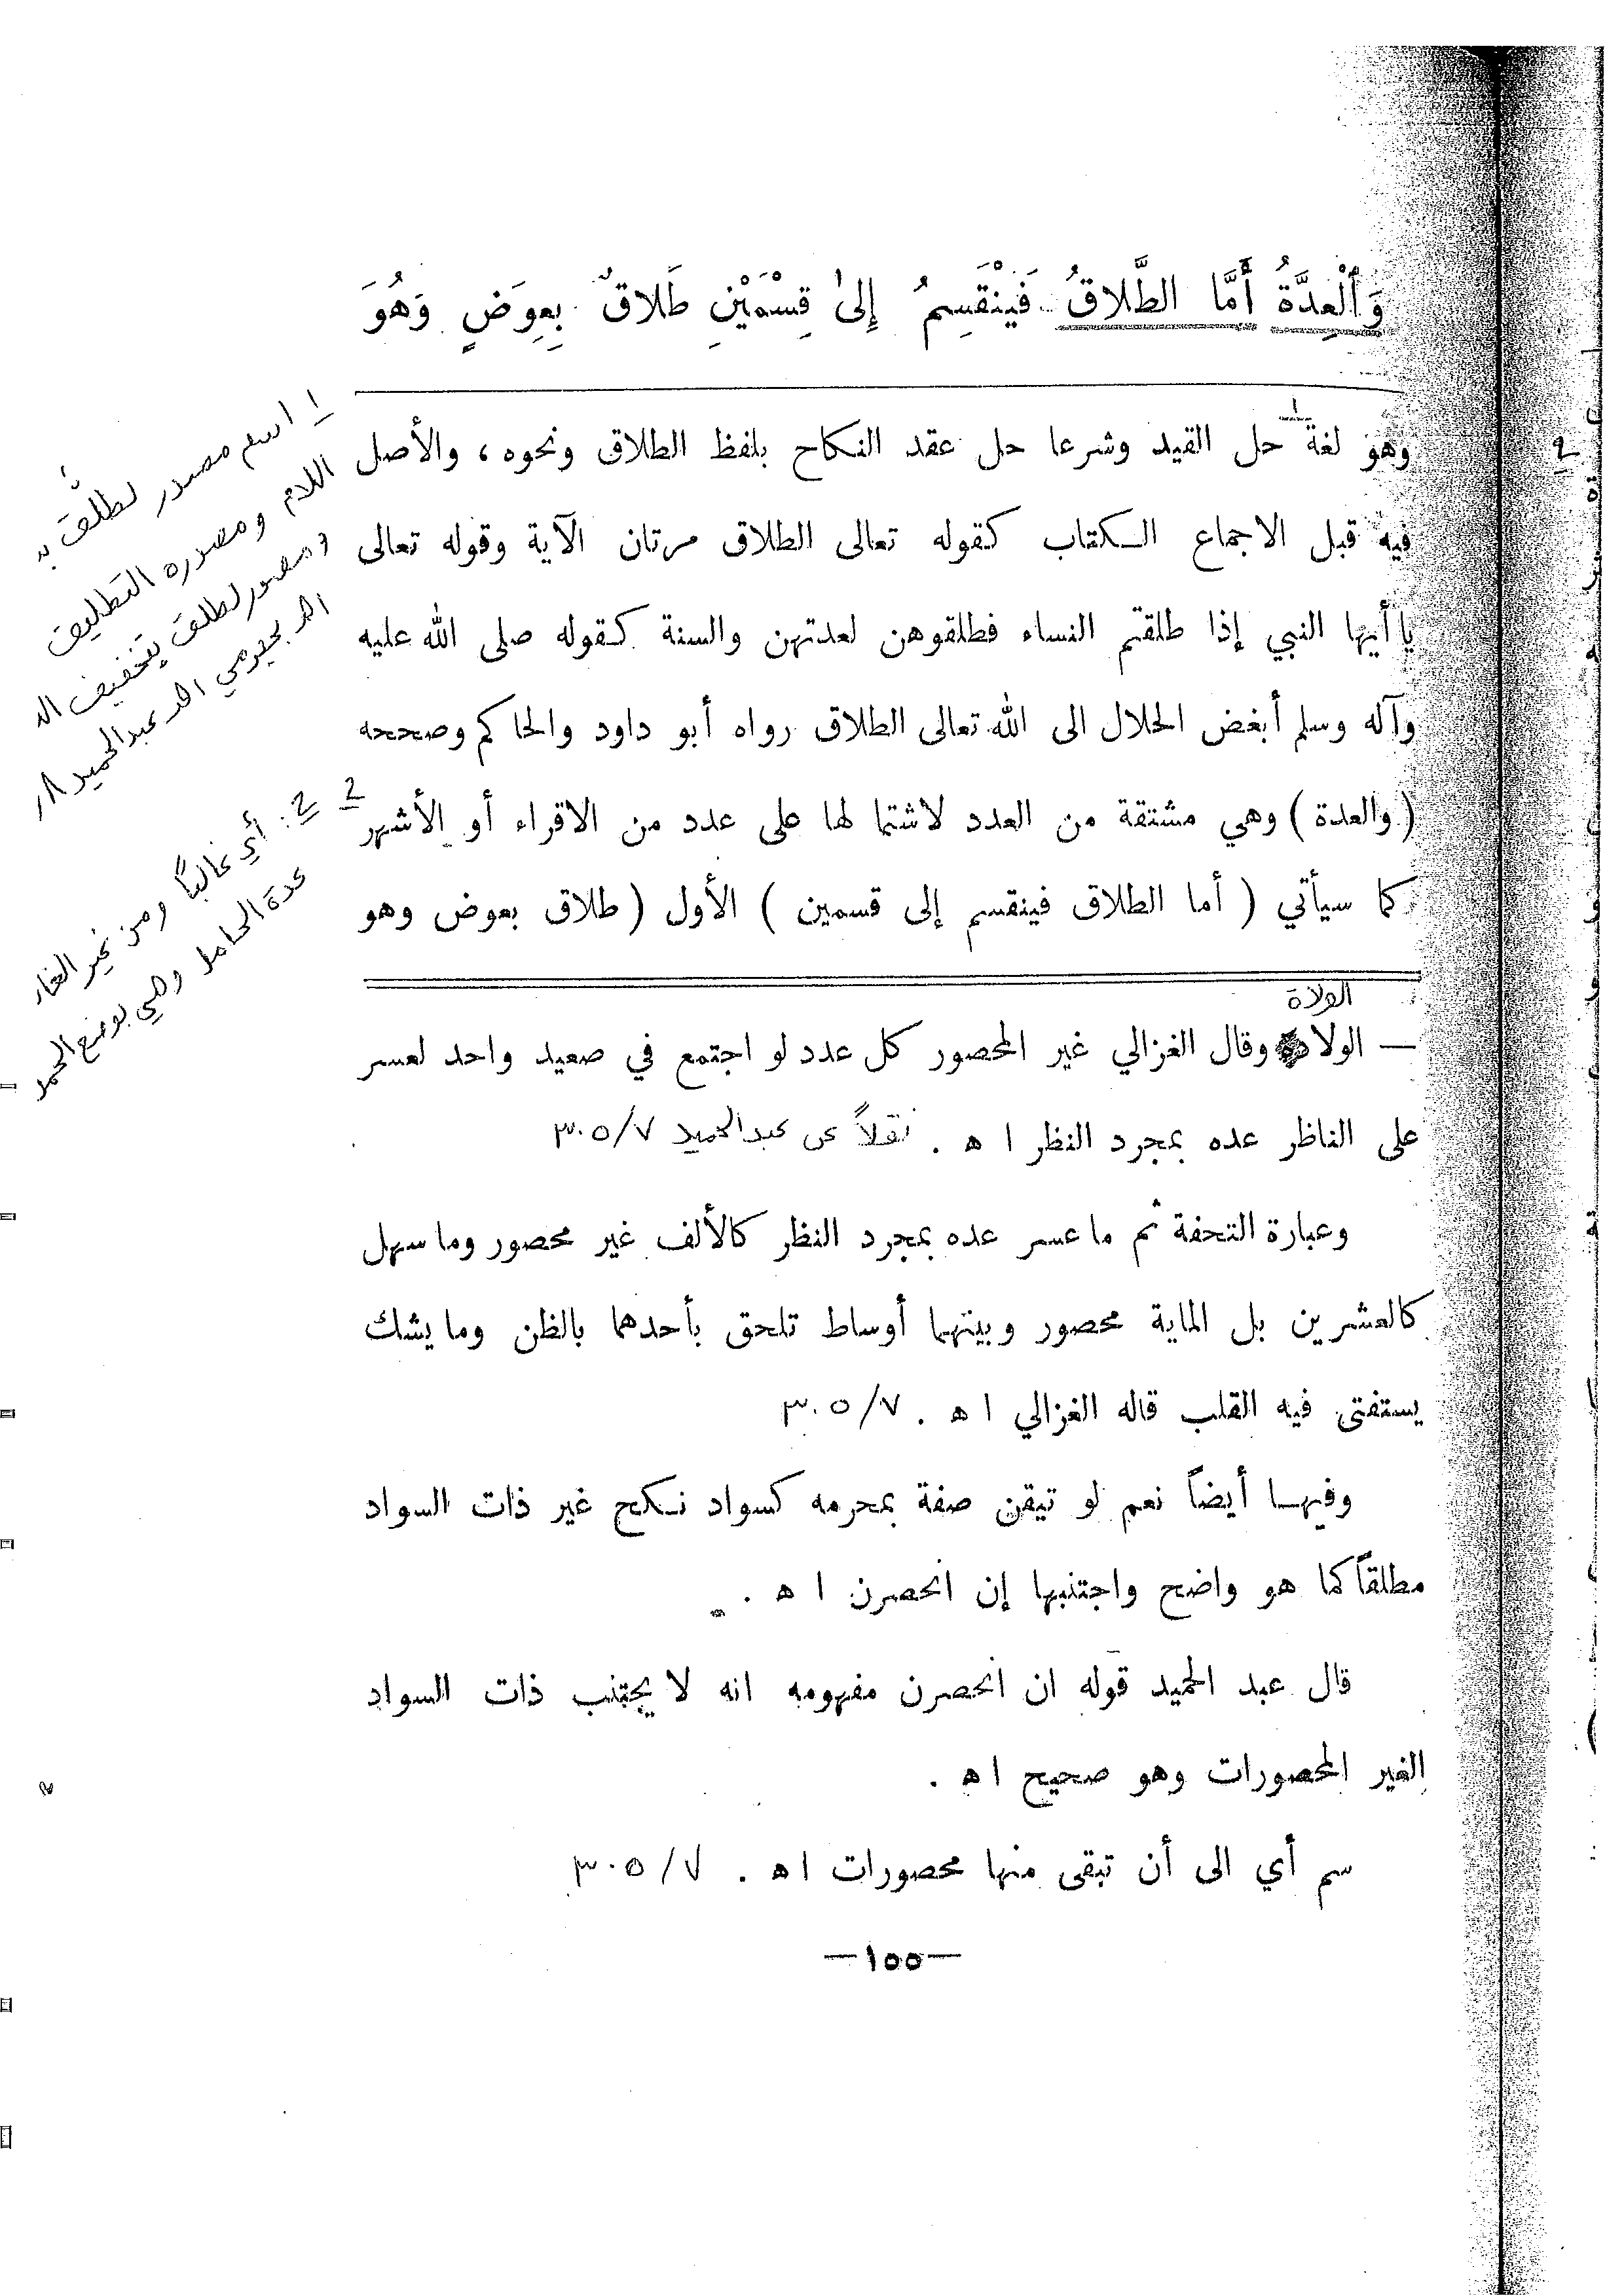 وَٱلْعِدَّةُ أَمَّا الطَّلَاقُ فَيَنْقَسِمُ إِلىٰ قِسْمَيْنِ طَلَاقٌ بِعِوَضٍ وَهُوَ
وهو لغة حل القيد وشرعا حل عقد النكاح بلفظ الطلاق ونحوه ، والأصل
فيه قبل الاجماع الكتاب كقوله تعالى الطلاق مرتان الآية وقوله تعالى
يا أيها النبي إذا طلقتم النساء فطلقوهن لعدتهن والسنة كقوله صلى الله عليه
وآله وسلم أبغض الحلال الى الله تعالى الطلاق رواه أبو داود والحاكم وصححه
( والعدة ) وهي مشتقة من العدد لاشتما لها على عدد من الاقراء أو الأشهر
كما سيأتي ( أما الطلاق فينقسم إلى قسمين ) الأول ( طلاق بعوض وهو
١ اسم مصدر لطلَّق بـ
اللام ومصدره التطليق
ومصدر لطلق بتخفيف الـ
اهـ بجيرمي اهـ عبدالحميد ٨/
2
2 : أي غالبًا ومن غير الغا
عدة الحامل وهي بوضع الحمل
الولاة
— الولاة وقال الغزالي غير المحصور كل عدد لو اجتمع في صعيد واحد لعسر
على الناظر عده بمجرد النظر ا ه . نقلاً عن عبدالحميد ٣٠٥/٧
وعبارة التحفة ثم ما عسر عده بمجرد النظر كالألف غير محصور وما سهل
كالعشرين بل الماية محصور وبينهما أوساط تلحق بأحدهما بالظن وما يشك
يستفتى فيه القلب قاله الغزالي ا ه . ٣٠٥/٧
وفيها أيضاً نعم لو تيقن صفة بمحرمه كسواد نكح غير ذات السواد
مطلقاً كما هو واضح واجتنبها إن انحصرن ا ه .
قال عبد الحميد قوله ان انحصرن مفهومه انه لا يجتنب ذات السواد
الغير المحصورات وهو صحيح ا ه .
سم أي الى أن تبقى منها محصورات ا ه . ٣٠٥/٧
—١٥٥—